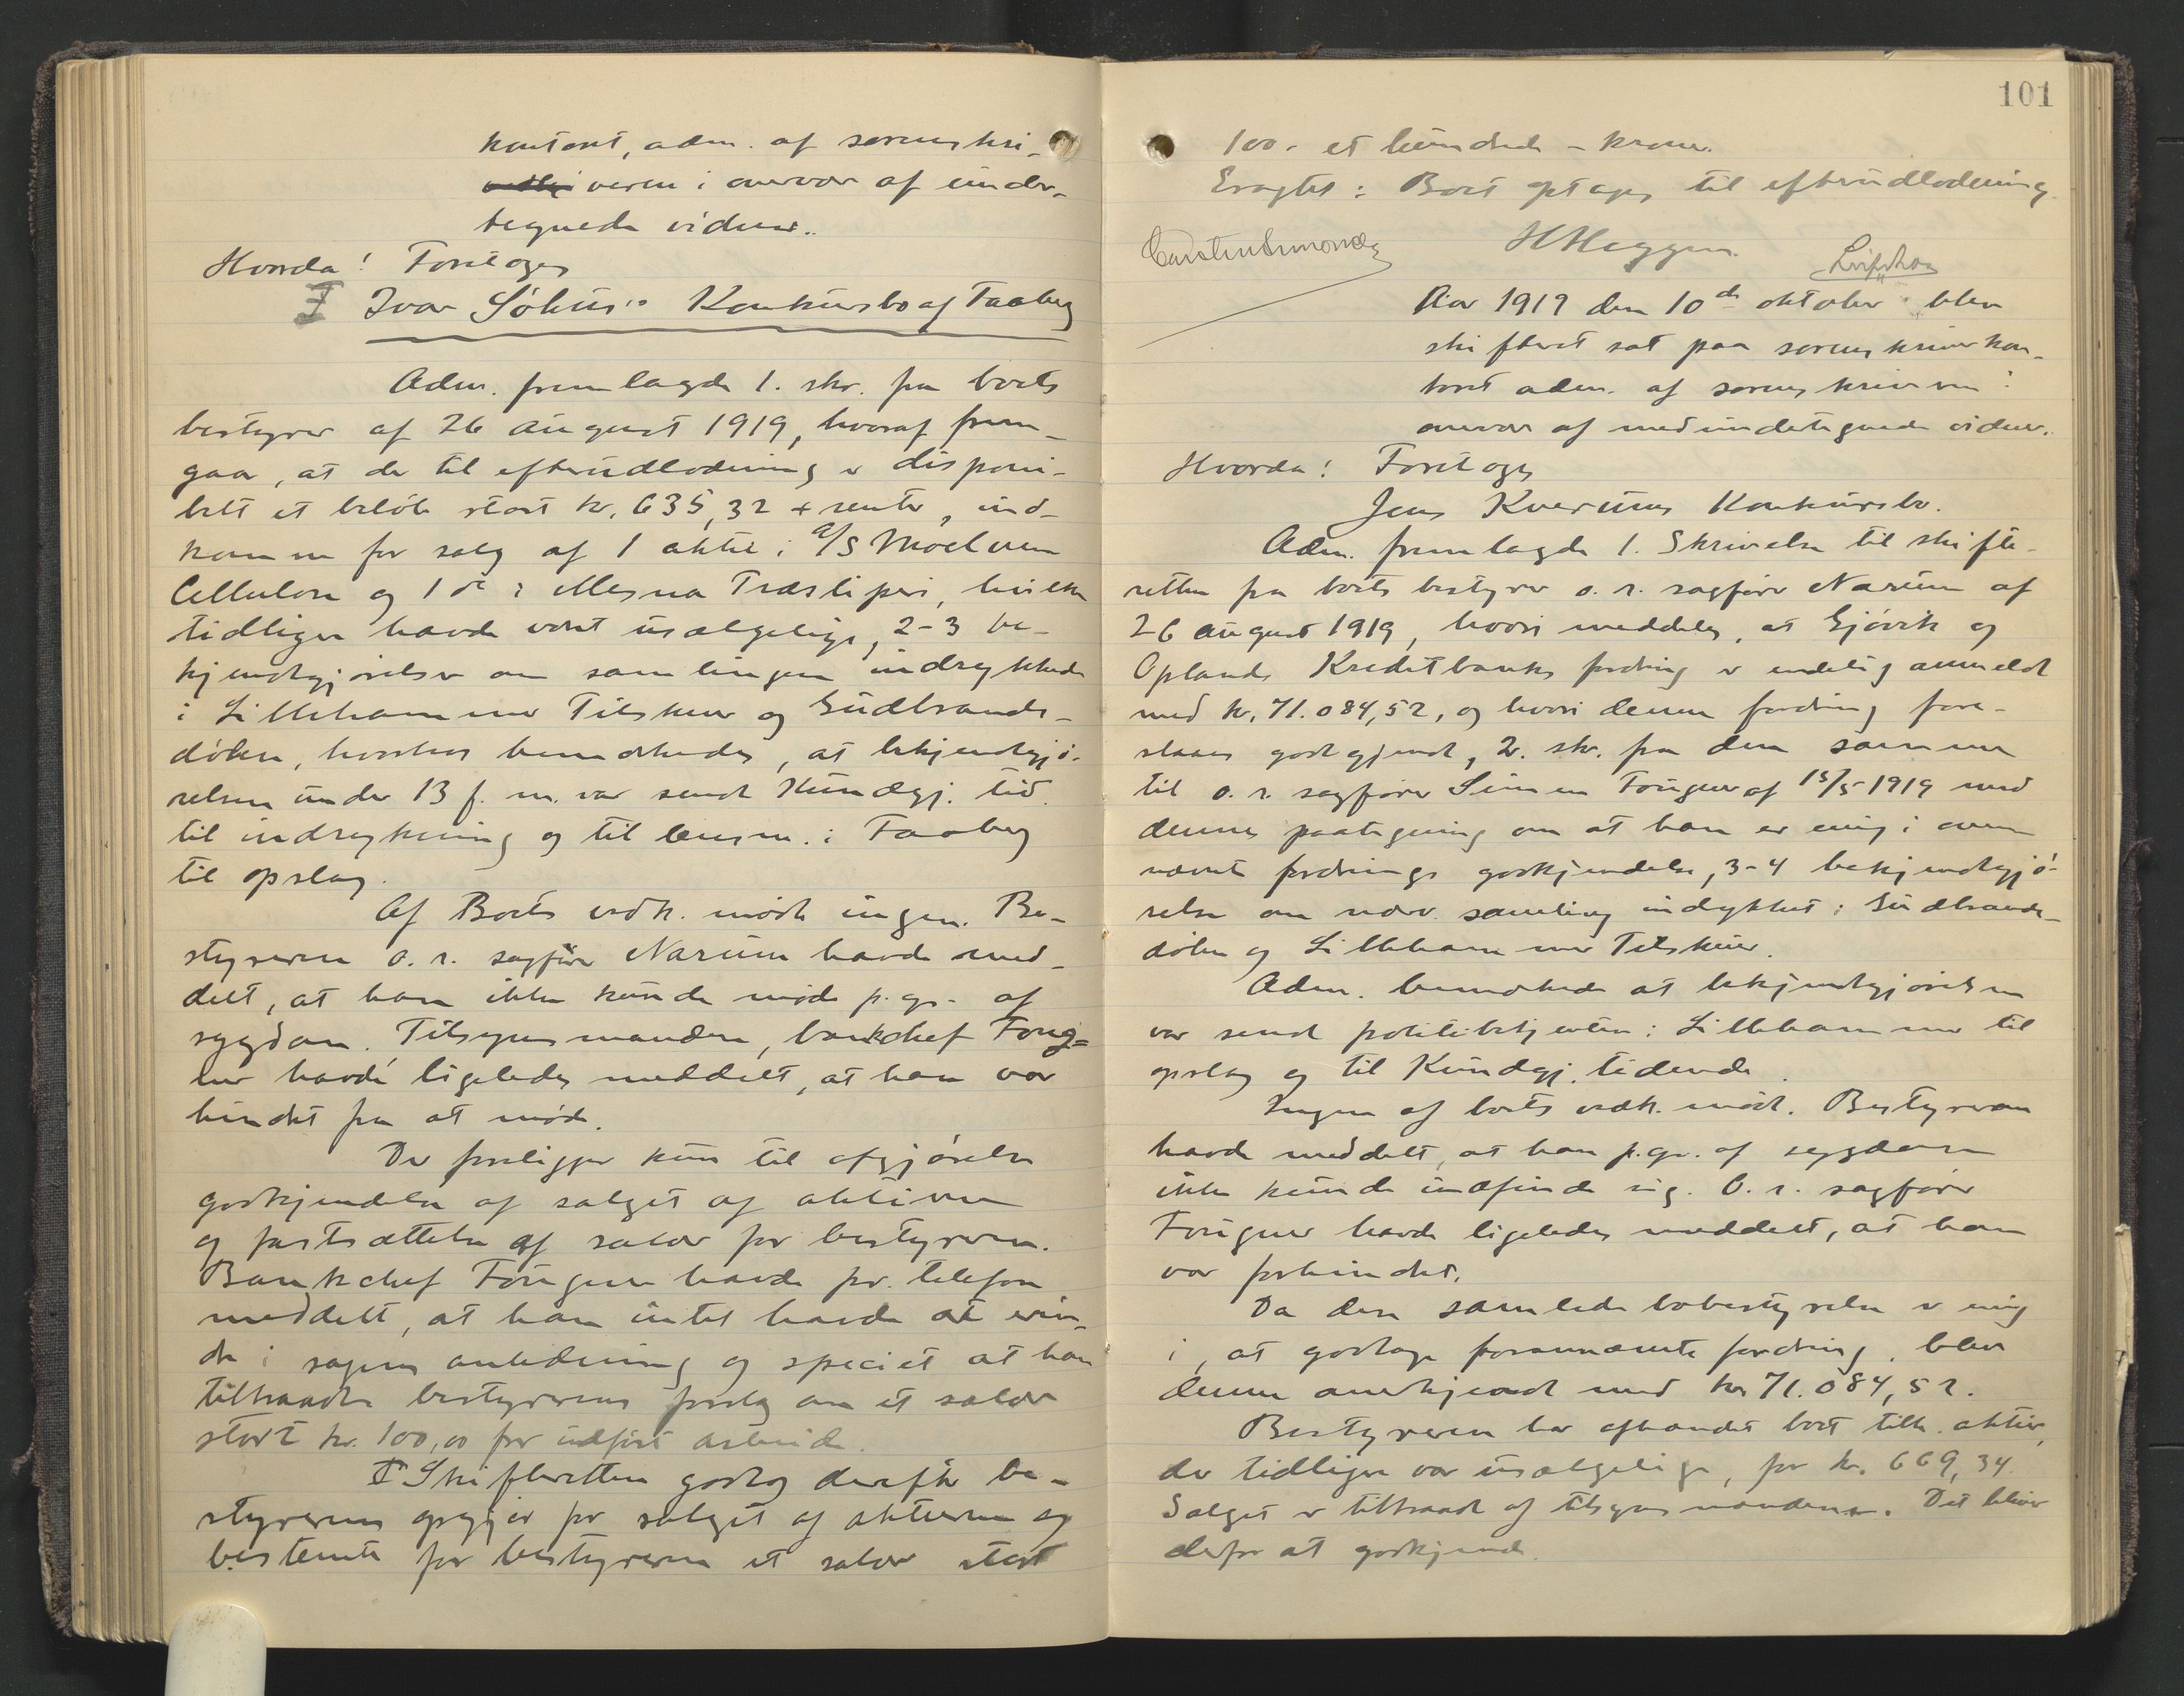 kontoret, adm. af sorenskri-
veren i overvær af under-
tegnede vidner.
Hvorda! Foretoges
I Ivar Söhus's Konkursbo af Faaberg
Adm. fremlagde 1. skr. fra boets
bestyrer af 26 august 1919, hvoraf frem-
gaar, at der til efterudlodning er disponi-
belt et beløb stort kr. 635,32 + renter, ind-
kommen for salg af 1 aktie i A/S Moelven
Cellulose og 1 do i Mesna Træsliperi, hvilke
tidligere havde været usælgelige, 2-3 be-
kjendtgjørelser om samlingen indrykkede
i Lillehammer Tilskuer og Gudbrands-
dölen, hvorhos bemerkedes, at bekjendtgjø-
relsen under 13 f. m. var sendt Kundgj. tid.
til indrykning og til lensm. i Faaberg
til opslag.
Af Boets vedk. mødte ingen. Be-
styreren o. r. sagfører Narum havde med-
delt, at han ikke kunde møde p. gr. af
sygdom. Tilsynsmanden, bankchef Foug-
ner havde ligeledes meddelt, at han var
hindret fra at møde.
Der foreligger kun til afgjørelse
godkjendelse af salget af aktierne
og fastsættelse af salær for bestyreren.
Bankchef Fougner havde pr. telefon
meddelt, at han intet havde at erin-
dre i sagens anledning og specielt at han
tiltraadte bestyrerens forslag om et salær
stort kr. 100,00 for udført arbeide.
Skifteretten godtog derefter be-
styrerens opgjør for salget af aktierne og
bestemte for bestyreren et salær stort
101
100 - et hundrede - kroner.
Eragtet: Boet optages til efterudlodning.
Carsten Simonsen
H Heggen
Aar 1919 den 10de oktober blev
skifteret sat paa sorenskriverkon-
toret adm. af sorenskriveren i
overvær af medundertegnede vidner.
Hvorda! Foretoges
Jens Kverums Konkursbo.
Adm. fremlagde 1. Skrivelse til skifte-
retten fra boets bestyrer o. r. sagfører Narum af
26 august 1919, hvori meddeles, at Gjøvik og
Oplands Kreditbanks fordring er endelig anmeldt
med kr. 71.084,52, og hvori denne fordring fore-
slaaes godkjendt, 2. skr. fra den samme
til o. r. sagfører Simen Fougner af 15/5 1919 med
dennes paategning om at han er enig i oven
nævnte fordrings godkjendelse, 3-4 bekjendtgjø-
relse om nærv. samling indrykket i Gudbrands-
dölen og Lillehammer Tilskuer.
Adm. bemerkede at bekjendtgjørelsen
var sendt politibetjenten i Lillehammer til
opslag og til Kundgj. tidende.
Ingen af boets vedk. mødte. Bestyreren
havde meddelt, at han p. gr. af sygdom
ikke kunde indfinde sig. O. r. sagfører
Fougner havde ligeledes meddelt, at han
var forhindret.
Da den samlede bobestyrelse er enig
i, at godtage forannævnte fordring, blev
denne anerkjendt med kr 71.084,52.
Bestyreren har afhændet boet tilh. aktier,
der tidligere var usælgelige, for kr. 669,34.
Salget er tiltraadt af tilsynsmanden. Det bliver
derfor at godkjende.